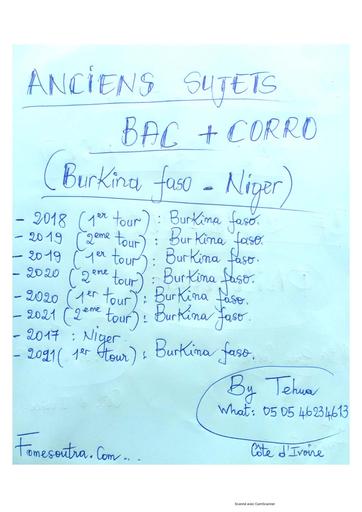 ANCIENS SUJETS
BAC + CORRO
(Burkina faso - Niger)
- 2018 (1er tour) : Burkina faso.
- 2019 (2eme tour) : Burkina faso.
- 2019 (1er tour) : Burkina faso.
- 2020 (2eme tour) : Burkina faso.
- 2020 (1er tour) : Burkina faso.
- 2021 (2eme tour) : Burkina faso.
- 2017 : Niger
- 2021 (1er tour) : Burkina faso.
By Tehua
What: 05 05 46234613
Fomesoutra.Com...
Côte d'Ivoire
Scanné avec CamScanner